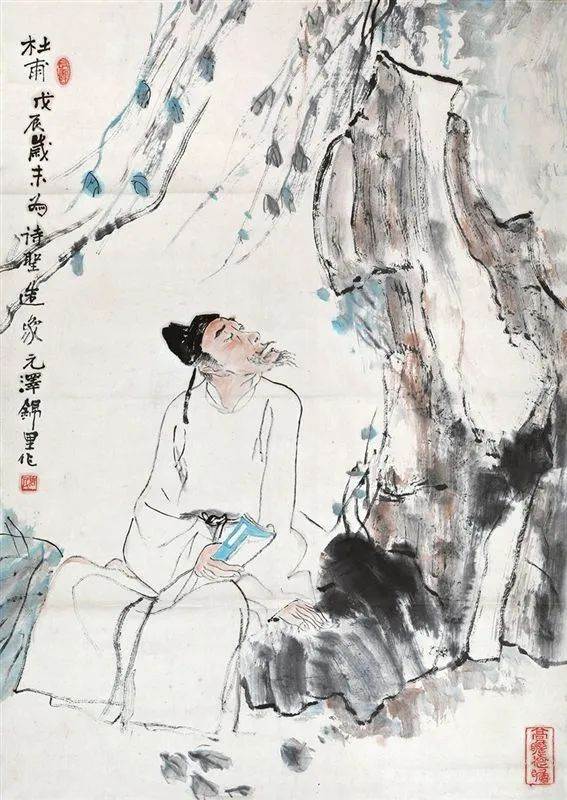 杜甫 戊辰岁末为诗聖造象 元澤錦里作